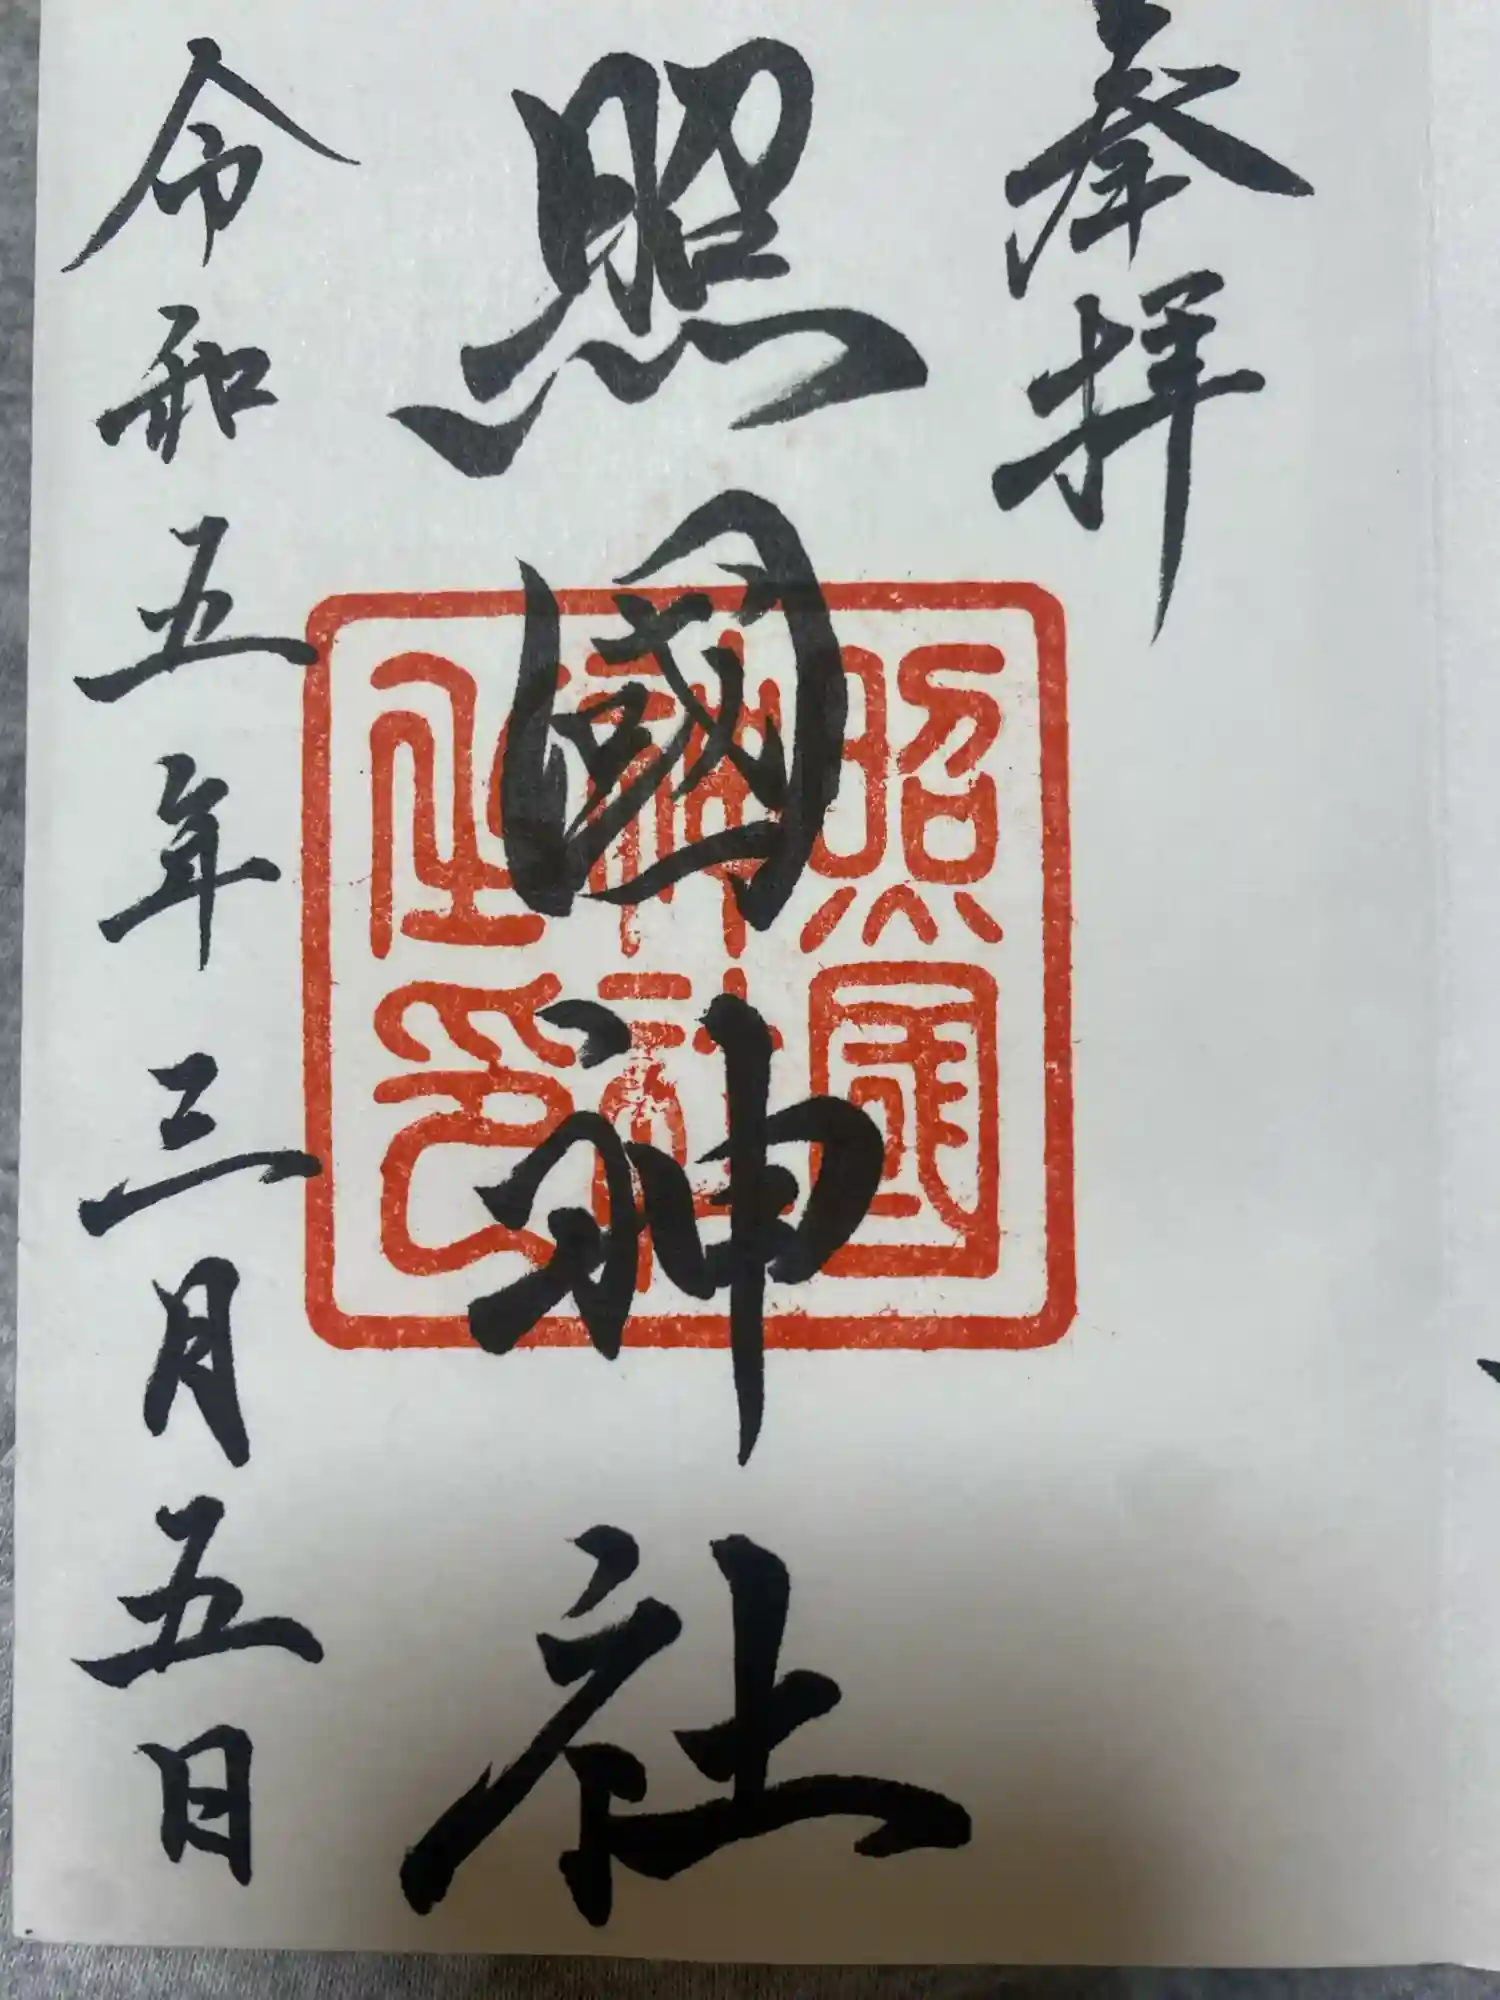 奉拝
照國神社
照國
神社
之印
令和五年三月五日